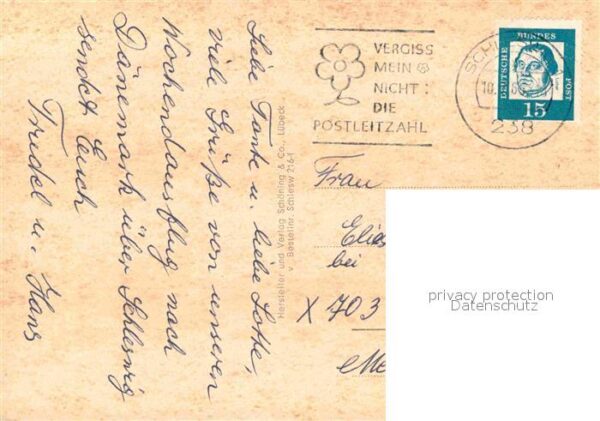 Liebe Tante u. liebe Lotte,
viele Grüße von unserem
Wochendausflug nach
Dänemark über Schleswig
sendet Euch
Trudel u. Hans
Hersteller und Verlag Schöning & Co., Lübeck
Schlesw 216
VERGISS
MEIN
NICHT:
DIE
POSTLEITZAHL
238
DEUTSCHE
BUNDES
POST
15
Frau
bei
X 703
privacy protection
Datenschutz